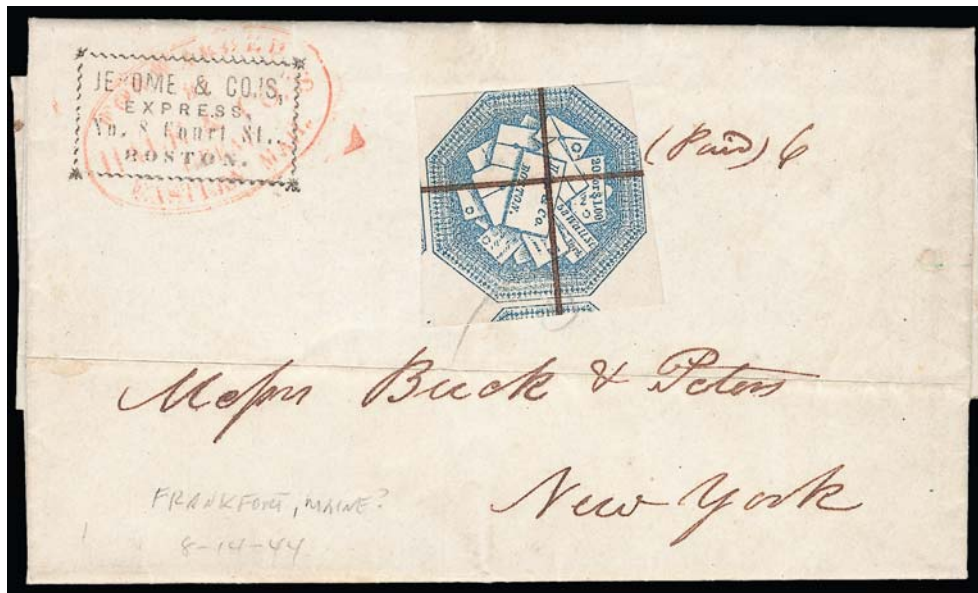 JEROME & CO.'S,
EXPRESS,
No. 8 Court St.,
BOSTON.
FORWARDED
EASTERN MAIL
20 for $1.00
BOSTON.
& Co.
(Paid) 6
Messrs Buck & Peters
New York
FRANKFORT, MAINE?
8-14-44